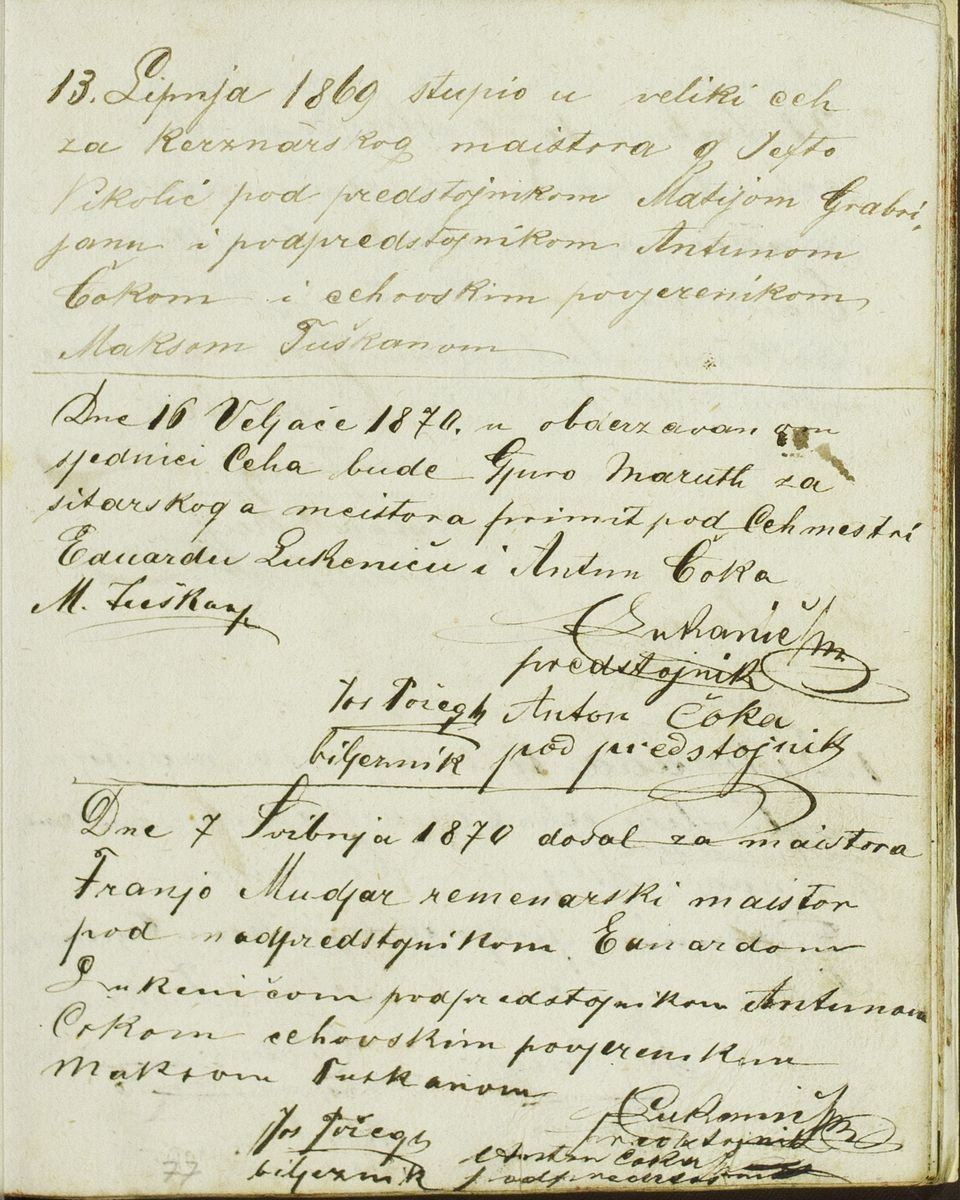 13. Lipnja 1869 stupio u veliki ceh
za kerznarskog maistora g Jefto
Nikolić pod predstojnikom Matijom Grabri-
janu i podpredstojnikom Antunom
Čokom i cehovskim povjerenikom
Maksom Tuškanom
Dne 16 Veljače 1870. u obderzavan
sjednici Ceha bude Gjuro Maruth za
sitarskoga meistora primit pod Cehmestri
Eduardu Lukeniču i Antun Čoka
M. Tuškan
Lukanič m
predstojnik
Jos Požegh Anton Čoka
biljeznik pod predstojnik
Dne 7 Svibnja 1870 dosal za maistora
Franjo Mudjar remenarski maistor
pod nadpredstojnikom Eduardom
Lukeničom podpredstojnikom Antunom
Čokom cehovskim povjerenikom
Maksom Tuskanom
Lukenič m
Jos Požegh predstojnik
Anton Čoka
biljeznik podpredstojnik
77